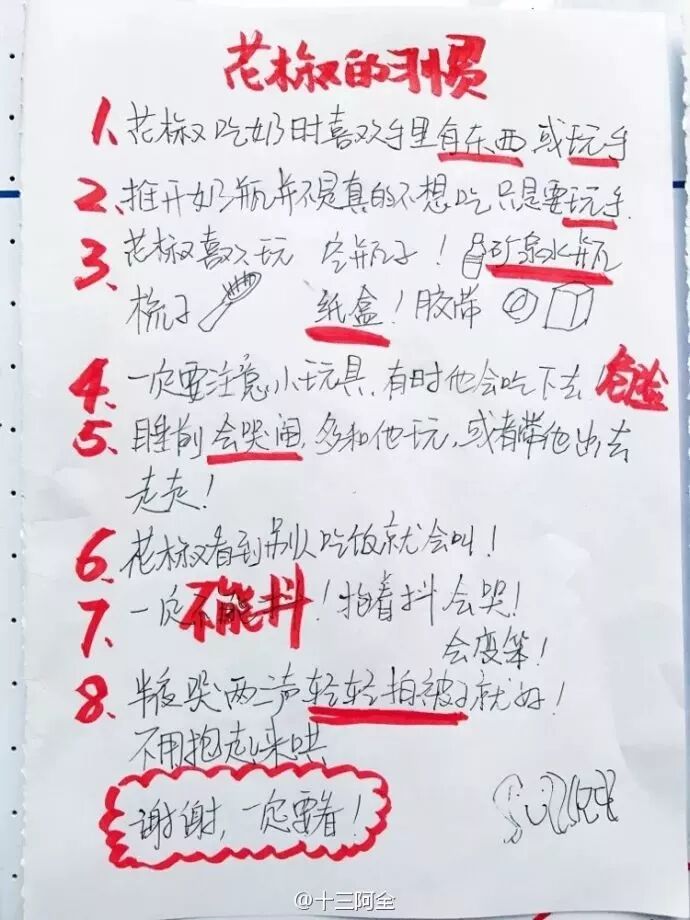 花椒的习惯
1、花椒吃奶时喜欢手里有东西或玩手
2、推开奶瓶并不是真的不想吃只是要玩手.
3、花椒喜欢玩 空瓶子！矿泉水瓶
梳子 纸盒！胶带
4、一定要注意小玩具，有时他会吃下去！危险
5、睡前会哭闹，多和他玩，或者带他出去
走走！
6、花椒看到别人吃饭就会叫！
7、一定不能抖！抱着抖会哭！
会变笨！
8、半夜哭两三声轻轻拍被子就好！
不用抱起来哄
谢谢，一定要看！
@十三阿全